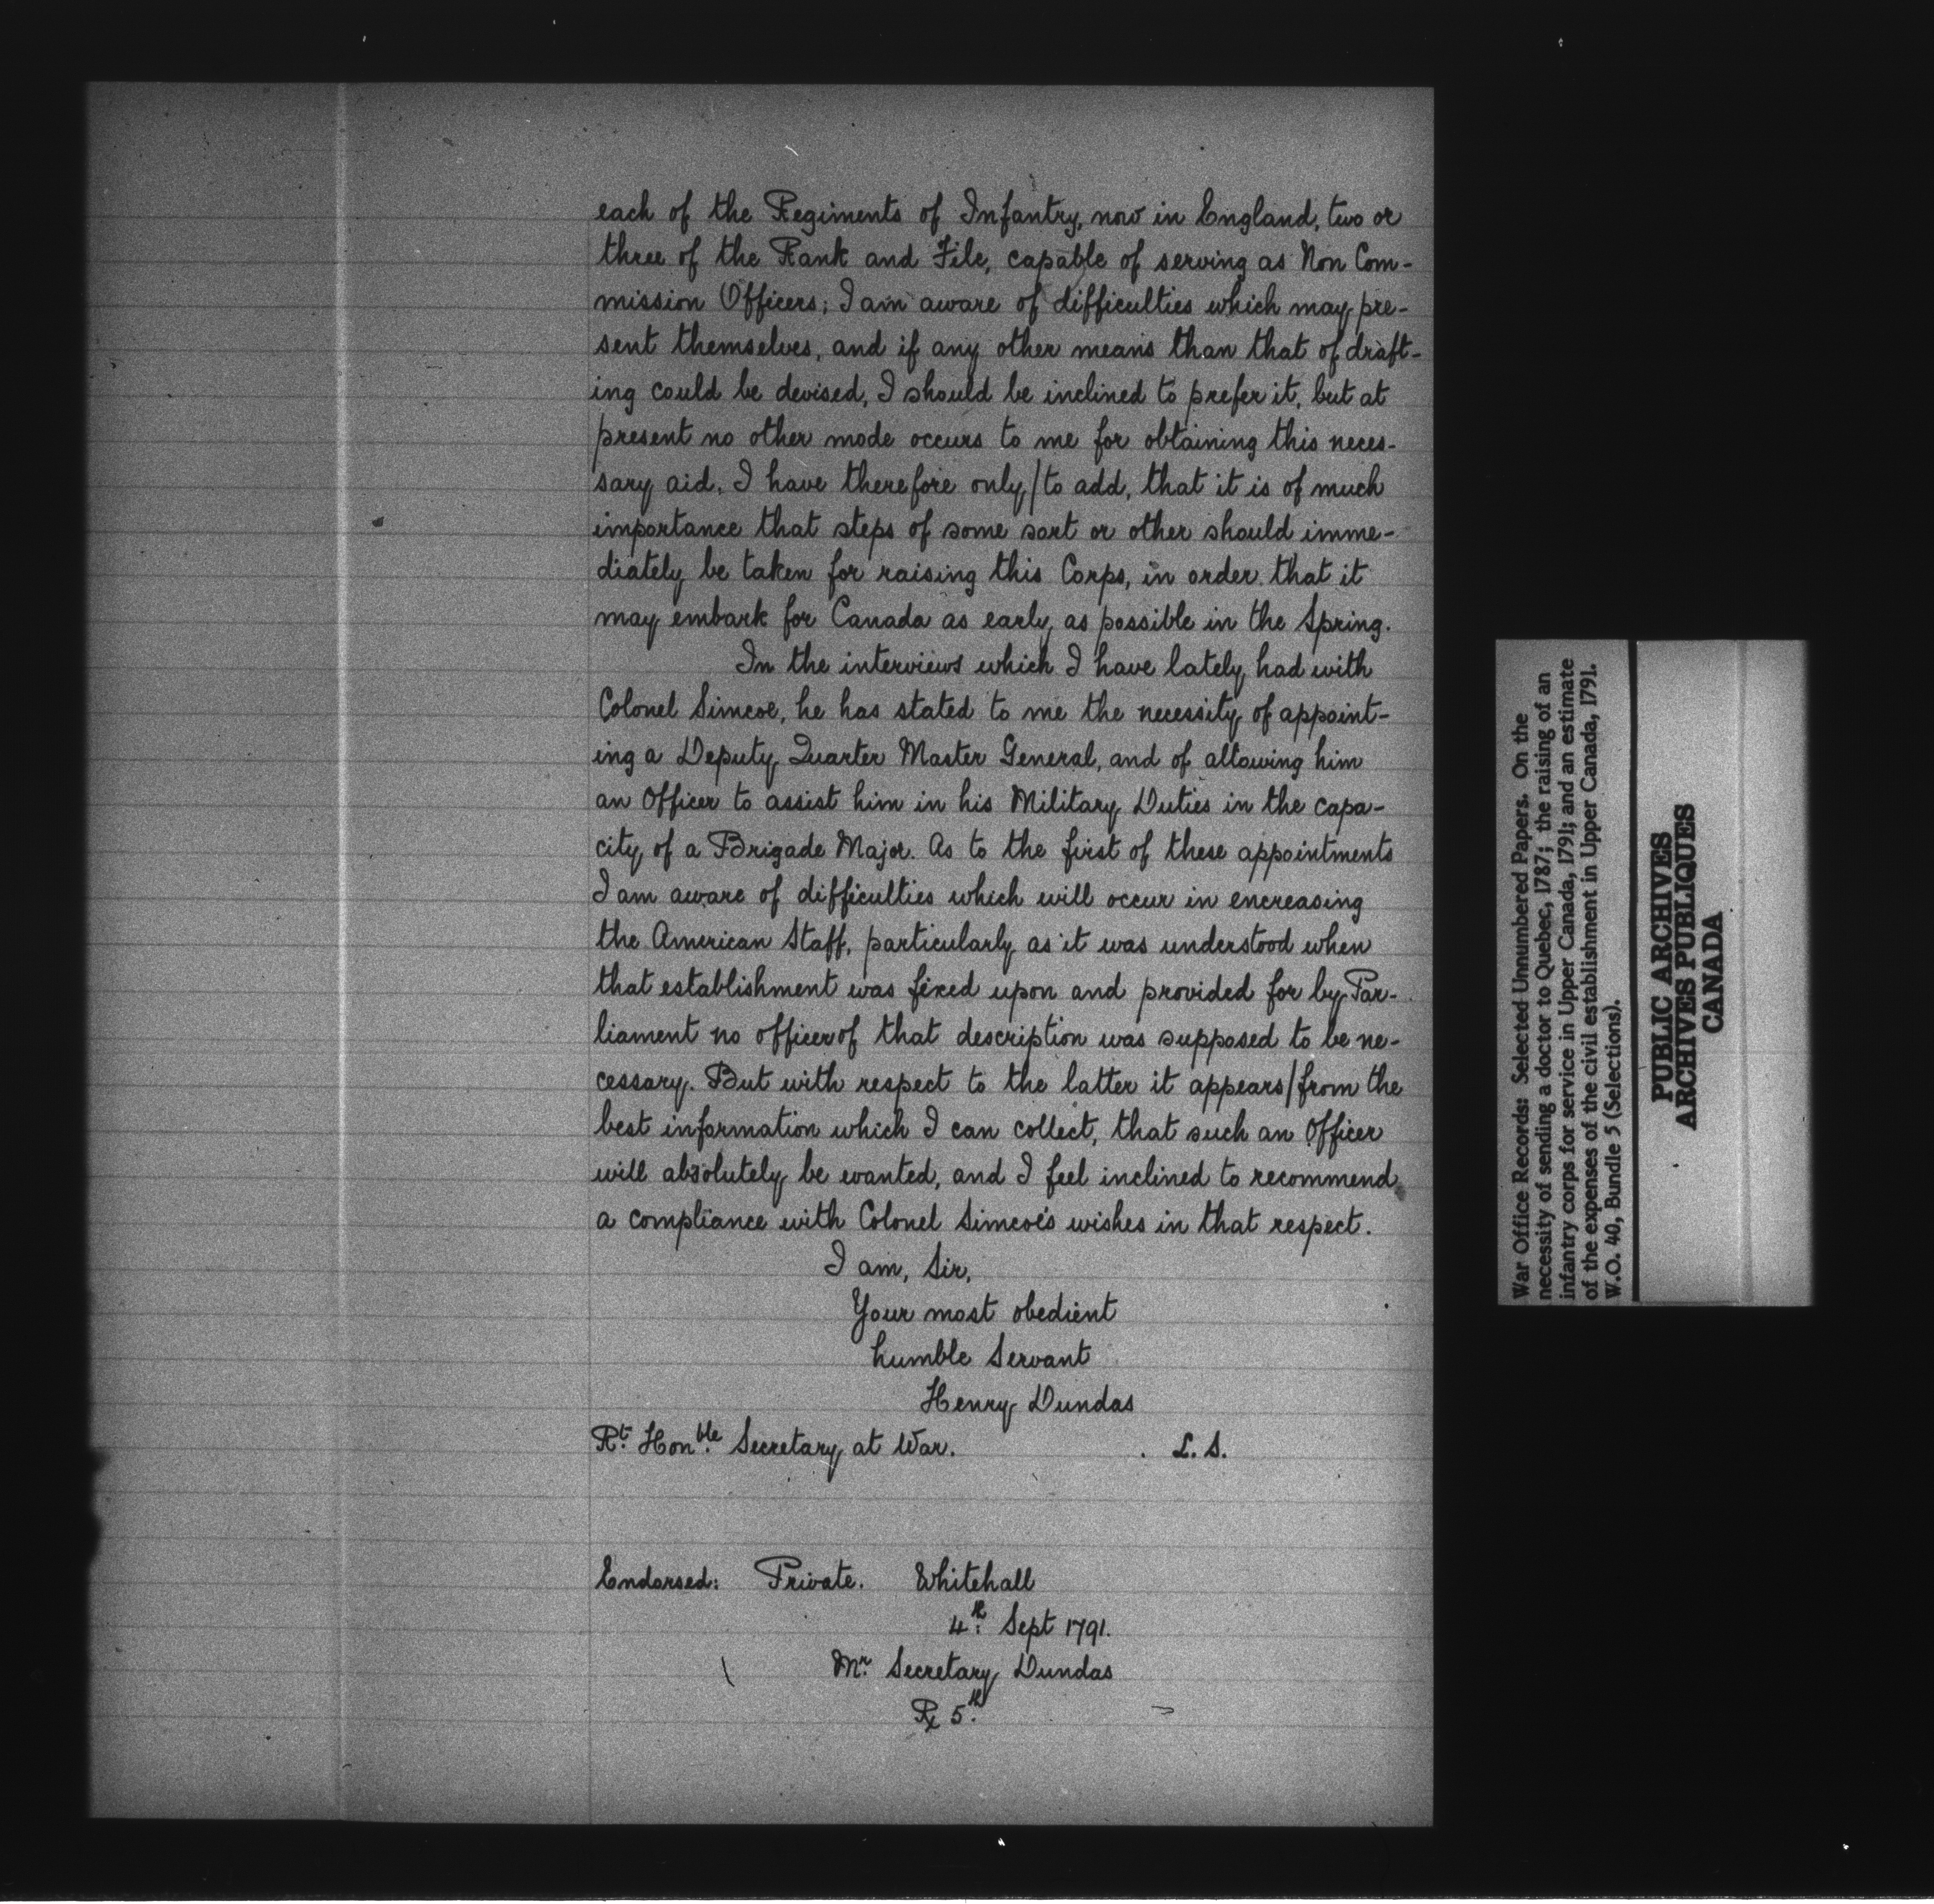 each of the Regiments of Infantry, now in England, two or
three of the Rank and File, capable of serving as Non Com-
mission Officers; I am aware of difficulties which may pre-
sent themselves, and if any other means than that of draft-
ing could be devised, I should be inclined to prefer it, but at
present no other mode occurs to me for obtaining this neces-
sary aid. I have therefore only/to add, that it is of much
importance that steps of some sort or other should imme-
diately be taken for raising this Corps, in order that it
may embark for Canada as early as possible in the Spring.
In the interviews which I have lately had with
Colonel Simcoe, he has stated to me the necessity of appoint-
ing a Deputy Quarter Master General, and of allowing him
an Officer to assist him in his Military Duties in the capa-
city of a Brigade Major. As to the first of these appointments
I am aware of difficulties which will occur in encreasing
the American Staff, particularly as it was understood when
that establishment was fixed upon and provided for by Par-
liament no officer of that description was supposed to be ne-
cessary. But with respect to the latter it appears/from the
best information which I can collect, that such an Officer
will absolutely be wanted, and I feel inclined to recommend
a compliance with Colonel Simcoe's wishes in that respect.
I am, Sir,
Your most obedient
humble Servant
Henry Dundas
Rt. Honble. Secretary at War. L. S.
Endorsed: Private. Whitehall
4th. Sept 1791.
Mr. Secretary Dundas
Rx 5th.
War Office Records: Selected Unnumbered Papers. On the
necessity of sending a doctor to Quebec, 1787; the raising of an
infantry corps for service in Upper Canada, 1791; and an estimate
of the expenses of the civil establishment in Upper Canada, 1791.
W.O. 40, Bundle 5 (Selections).
PUBLIC ARCHIVES
ARCHIVES PUBLIQUES
CANADA